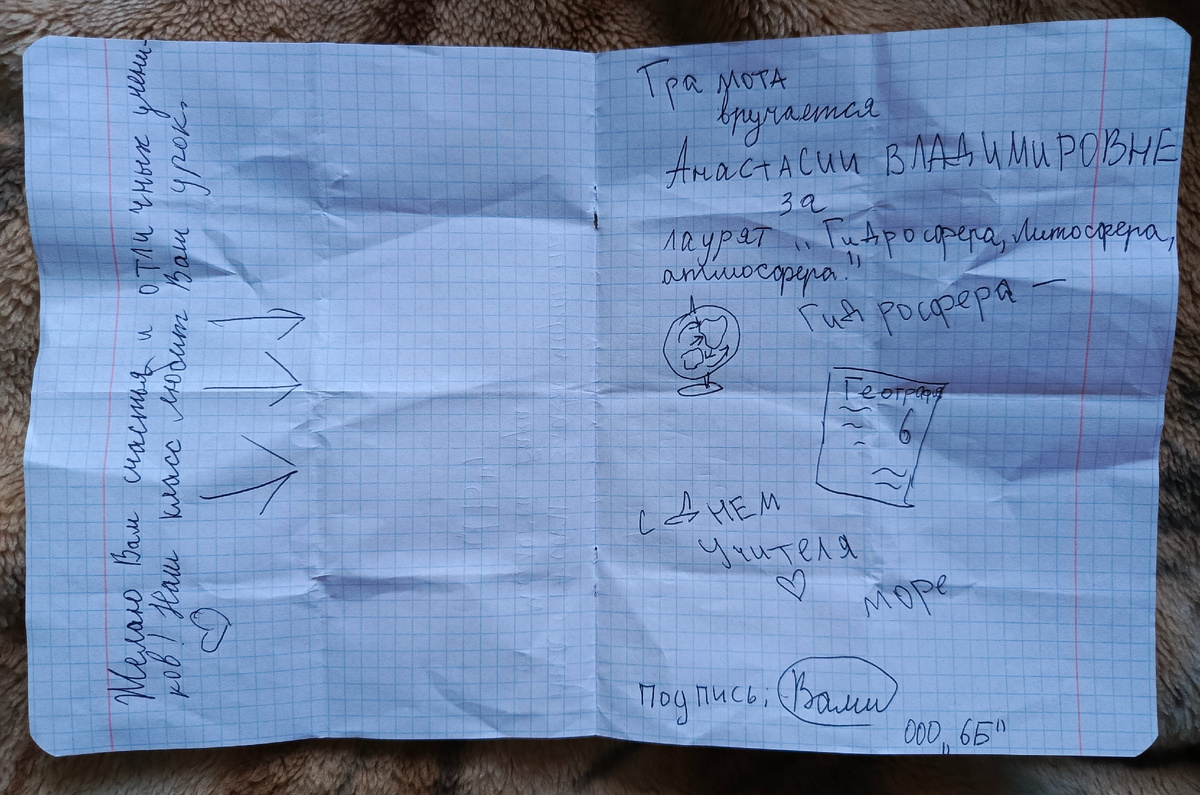 Желаю Вам счастья и отличных учени-
ков! Наш класс любит Ваш урок.
Грамота
вручается
Анастасии ВЛАДИМИРОВНЕ
за
лаурят „Гидросфера, литосфера,
атмосфера."
Гидросфера —
География
6
с Днем
Учителя
море
Подпись: Вами
ООО „6Б"